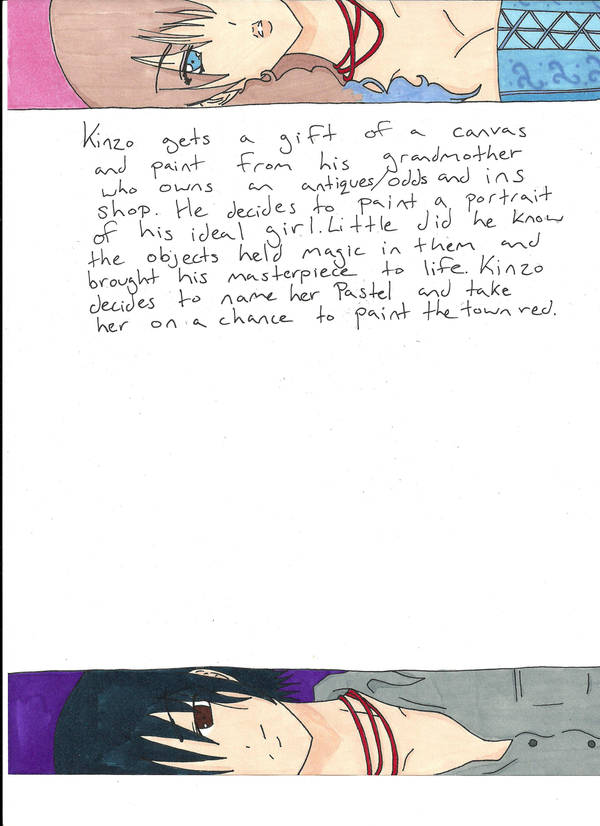 Kinzo gets a gift of a canvas
and paint from his grandmother
who owns an antiques/odds and ins
shop. He decides to paint a portrait
of his ideal girl. Little did he know
the objects held magic in them and
brought his masterpiece to life. Kinzo
decides to name her Pastel and take
her on a chance to paint the town red.